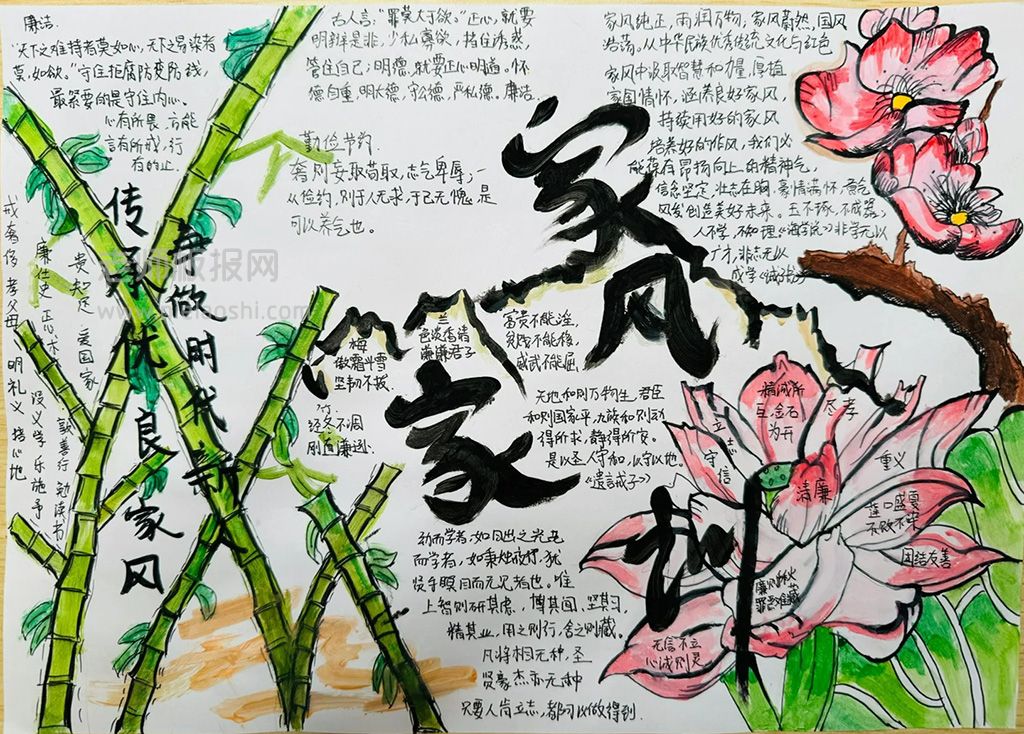 廉洁
"天下之难持者莫如心,天下易染者
莫如欲。"守住拒腐防变防线,
最紧要的是守住内心。
心有所畏,方能
言有所戒,行
有所止
古人言:"罪莫大于欲。"正心,就要
明辩是非,少私寡欲,挡住诱惑,
管住自己;明德,就要正心明道。怀
德自重,明大德,守公德,严私德。廉洁
勤俭节约
奢则妄取苟取,志气卑辱;一
从俭约,则于人无求,于己无愧,是
可以养气也。
家风纯正,雨润万物,家风蔚然,国风
浩荡。从中华民族优秀传统文化与红色
家风中汲取智慧和力量,厚植
家国情怀,涵养良好家风,
持续用好的家风
培养好的作风,我们必
能葆有昂扬向上的精神气,
信念坚定,壮志在胸,豪情满怀,意气
风发创造美好未来。玉不琢,不成器;
人不学,不知理。《诲学说》非学无以
广才,非志无以
成学《诫子书》
家风
家
训
传承优良家风
争做时代新人
戒奢侈 孝父母 明礼义 培心地
廉仕史 正心术 设义学 乐施予
贵知足 爱国家 敦善行 勉读书
梅
傲霜斗雪
坚韧不拔
兰
色淡香清
谦谦君子
竹
经冬不凋
刚直谦逊
富贵不能淫,
贫贱不能移,
威武不能屈,
天地和则万物生,君臣
和则国家平,九族和则动
得所求,静得所安。
是以圣人守和,以守以地。
《遗言戒子》
幼而学者,如日出之光也
而学者,如秉烛夜行,犹
贤乎瞑目而无见者也。惟
上智则研其虑,博其闻,坚其习,
精其业,用之则行,舍之则藏。
凡将相无种,圣
贤豪杰亦无种
只要人肯立志,都可以做得到.
精诚所
至,金石
为开
尽孝
立志
守信
重义
清廉
莲口盛夏
不败不寐
团结友善
无信不立
心诚则灵
老师板报网